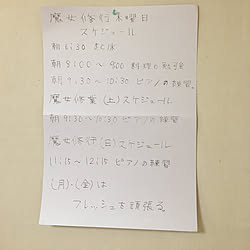 魔女修行木曜日
スケジュール
朝6:30 さくぶ
朝8:00〜9:00 料理の勉強
朝9:30〜10:30 ピアノの練習。
魔女修業(土)スケジュール
朝9:30〜10:30 ピアノの練習
魔女修行(日)スケジュール
11:15〜12:15 ピアノの練習
(月)・(金)は
フレッシュを頑張る。